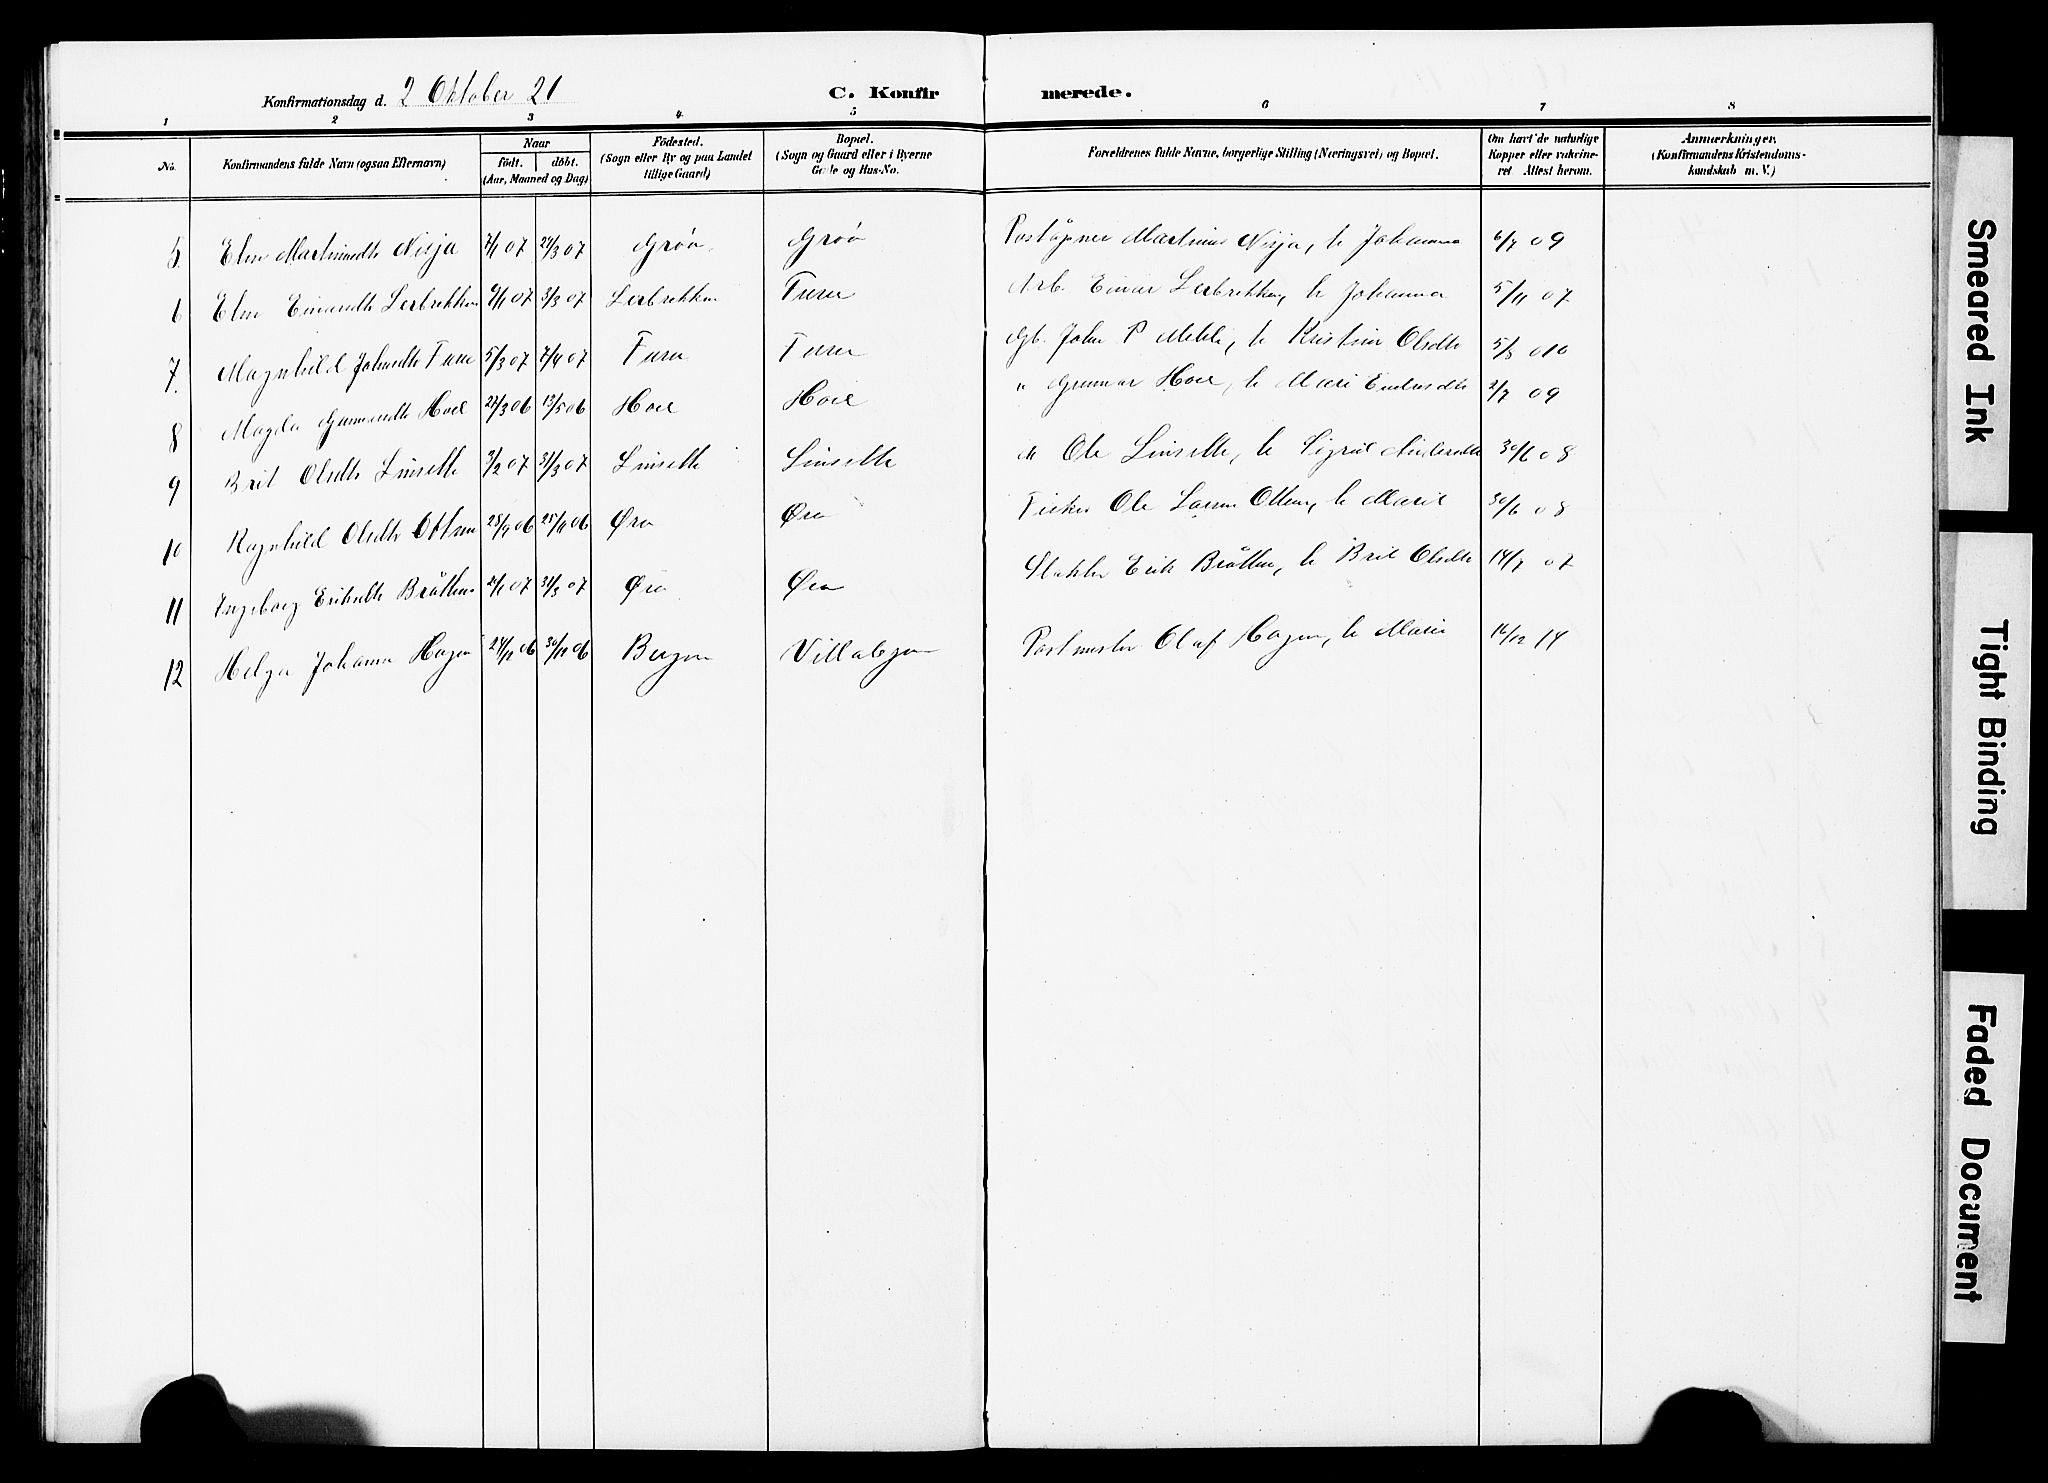 Konfirmationsdag d. 2 Oktober 21
C. Konfirmerede.
1 2 3 4 5 6 7 8
No. Konfirmandens fulde Navn (ogsaa Efternavn) Naar født. døbt. (Aar, Maaned og Dag) Fødested. (Sogn eller By og paa Landet tillige Gaard) Bopæl. (Sogn og Gaard eller i Byerne Gade og Hus-No. Forældrenes fulde Navne, borgerlige Stilling (Næringsvei) og Bopæl. Om havt de naturlige Kopper eller vakcineret. Attest herom. Anmærkninger. (Konfirmandens Kristendomskundskab m. V.)
5. Elen Martinusdtr Nisja 7/1 07 24/3 07 Grøa Grøa Postaapner Martinus Nisja, h Johanna 6/7 09
6 Elen Einarsdtr Lesbrekken 9/1 07 3/3 07 Lesbrekken Furu Arb. Einar Lesbrekken, h Johanna 5/11 07
7. Magnhild Johnsdtr Furu 5/3 07 7/4 07 Furu Furu Gb. John P Mehli, h Kristine Olsdtr 5/8 010
8 Magda Gunnarsdtr Hoel 27/3 06 13/5 06 Hoel Hoel " Gunnar Hoel, h Mari 2/7 09
9 Brit Olsdtr Linsette 3/2 07 31/3 07 Linsette Linsette " Ole Linsette, h Sigrid Andersdtr 30/6 08
10 Ragnhild Olsdtr Ottem 28/9 06 25/11 06 Øra Øra Fisker Ole Larsen Ottem, h Marit 30/6 08
11 Ingeborg Eriksdtr Bråtten 21/1 07 31/3 07 Øra Øra Slakter Erik Bråtten, h Brit Olsdtr 14/7 07
12 Helga Johanne Hagen 24/11 06 30/12 06 Bergen Postmester Olaf Hagen, h Marie 16/12 14
Smeared Ink
Tight Binding
Faded Document